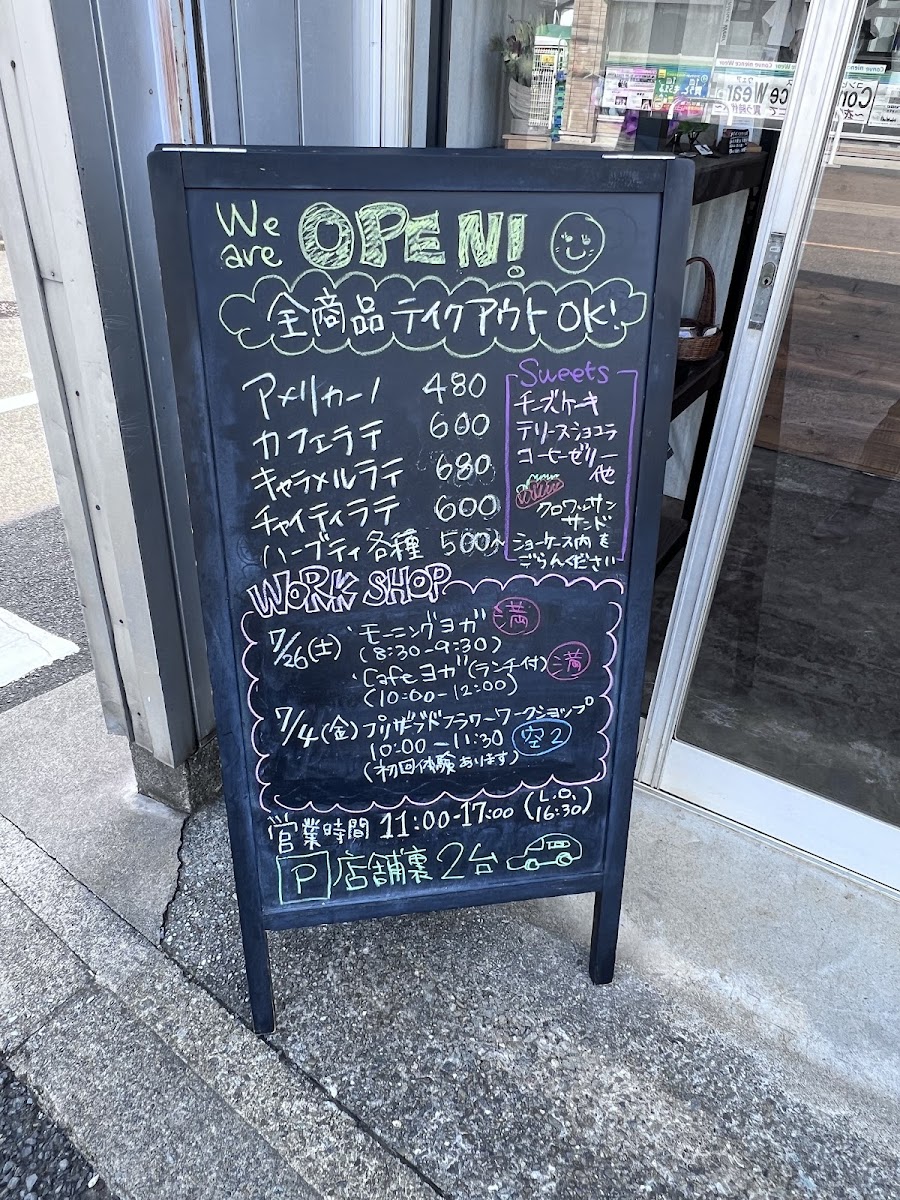 We are OPEN!
全商品テイクアウトOK!
アメリカーノ 480
カフェラテ 600
キャラメルラテ 680
チャイティラテ 600
ハーブティ各種 500~
Sweets
チーズケーキ
テリーヌショコラ
コーヒーゼリー
他
クロワッサン
サンド
ショーケース内を
ごらんください
WORK SHOP
7/26(土)・モーニングヨガ 満
(8:30-9:30)
・Cafeヨガ(ランチ付) 満
(10:00-12:00)
7/4(金)プリザーブドフラワーワークショップ
10:00-11:30 空2
(初回体験あります)
営業時間 11:00-17:00 (L.O. 16:30)
P 店舗裏2台